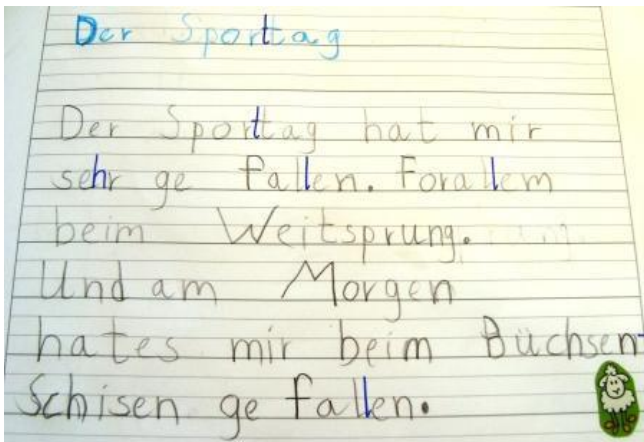 Der Sporttag
Der Sporttag hat mir
sehr ge fallen. Forallem
beim Weitsprung.
Und am Morgen
hates mir beim Büchsen-
Schisen ge fallen.